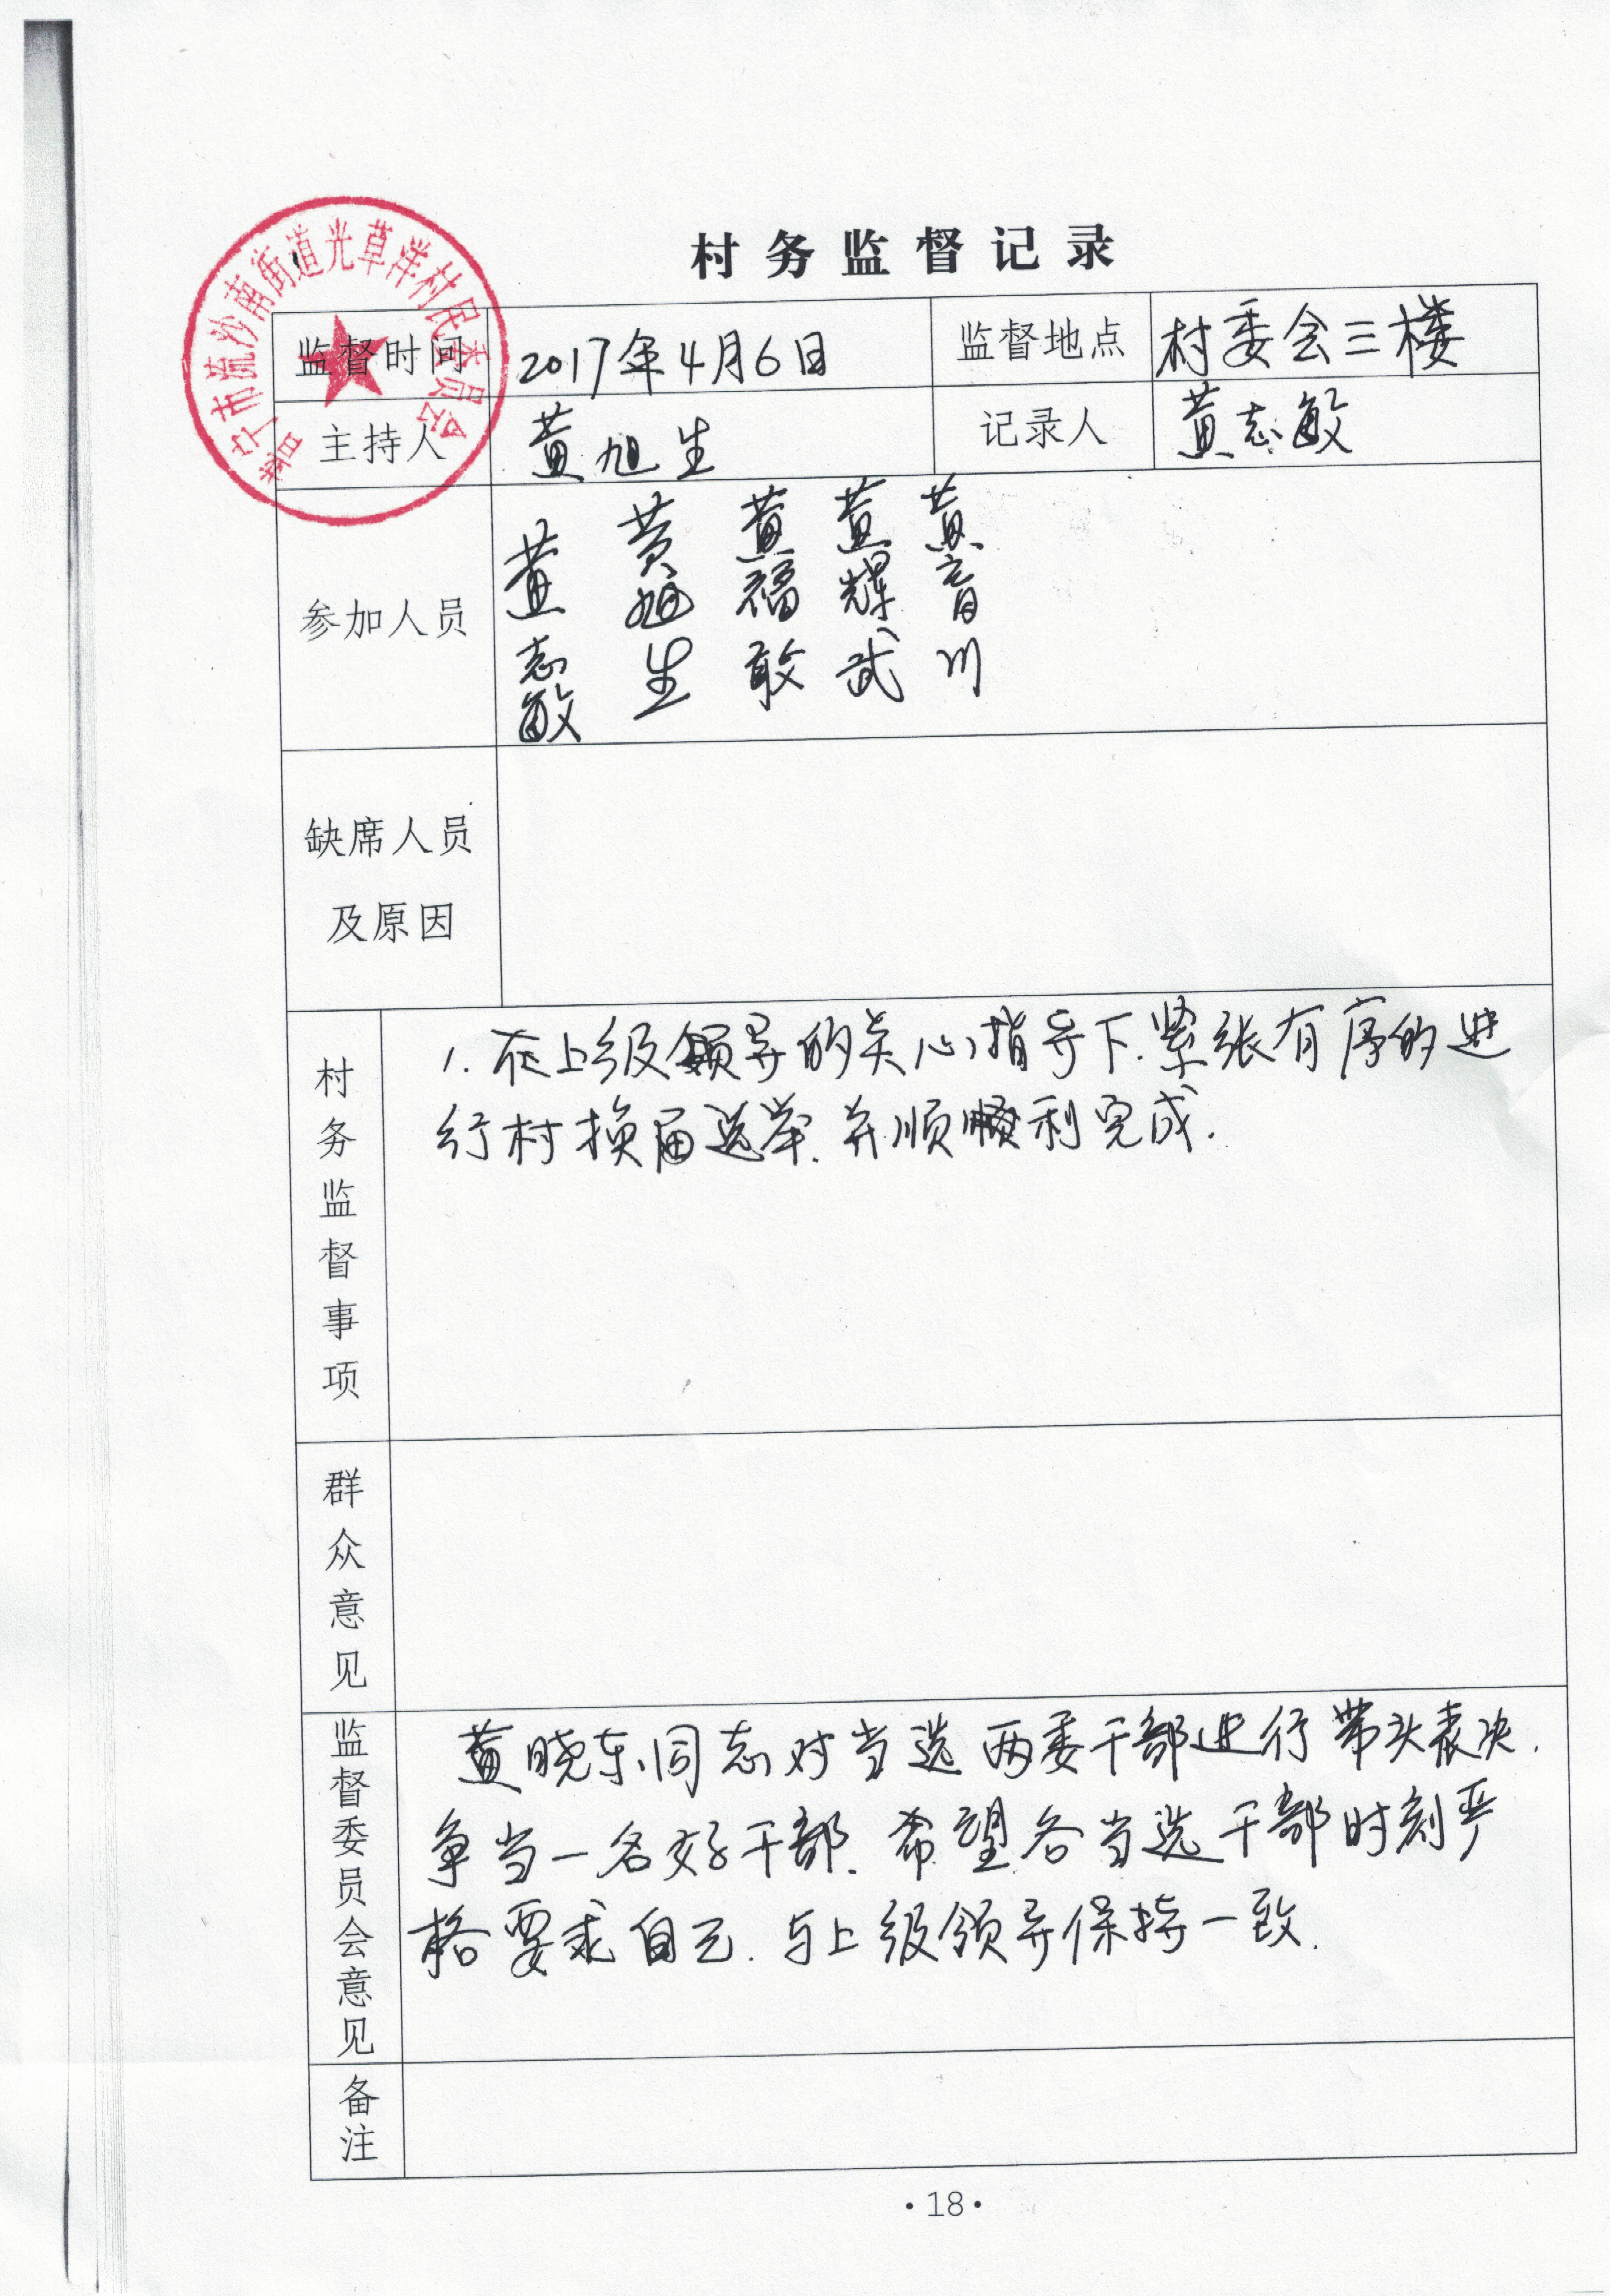 普宁市流沙南街道光草洋村民委员会
村务监督记录
监督时间 2017年4月6日 监督地点 村委会三楼
主持人 黄旭生 记录人 黄志敏
参加人员 黄志敏 黄旭生 黄福敢 黄辉武 黄育川
缺席人员
及原因
村务监督事项
1.在上级领导的关心指导下.紧张有序的进
行村换届选举.并顺利完成.
群众意见
监督委员会意见
黄晓东同志对当选两委干部进行带头表决.
争当一名好干部.希望各当选干部时刻严
格要求自己.与上级领导保持一致.
备注
·18·